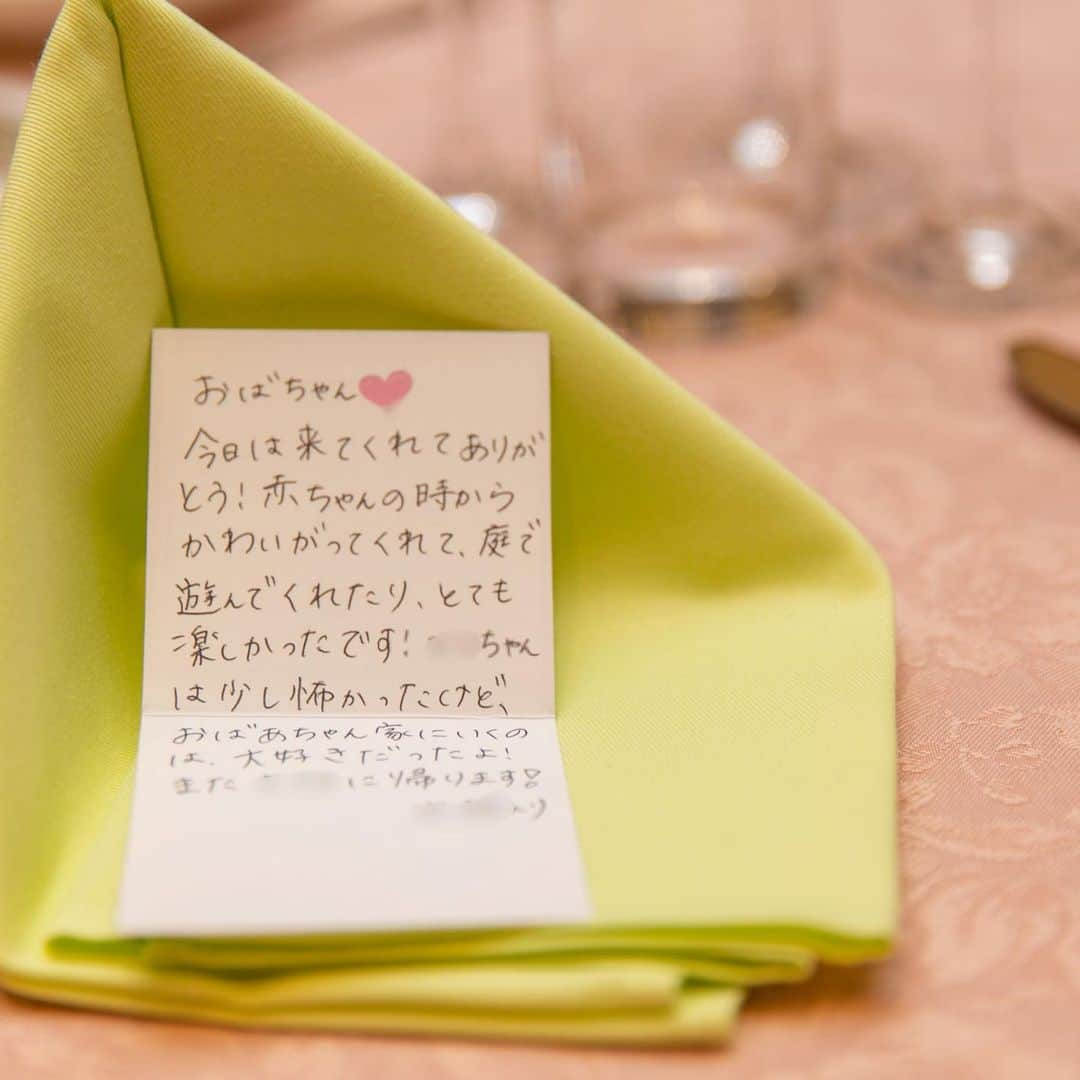 おばちゃん
今日は来てくれてありが
とう!赤ちゃんの時から
かわいがってくれて、庭で
遊んでくれたり、とても
楽しかったです! ちゃん
は少し怖かったけど、
おばあちゃん家にいくの
は、大好きだったよ!
また に帰ります!
より